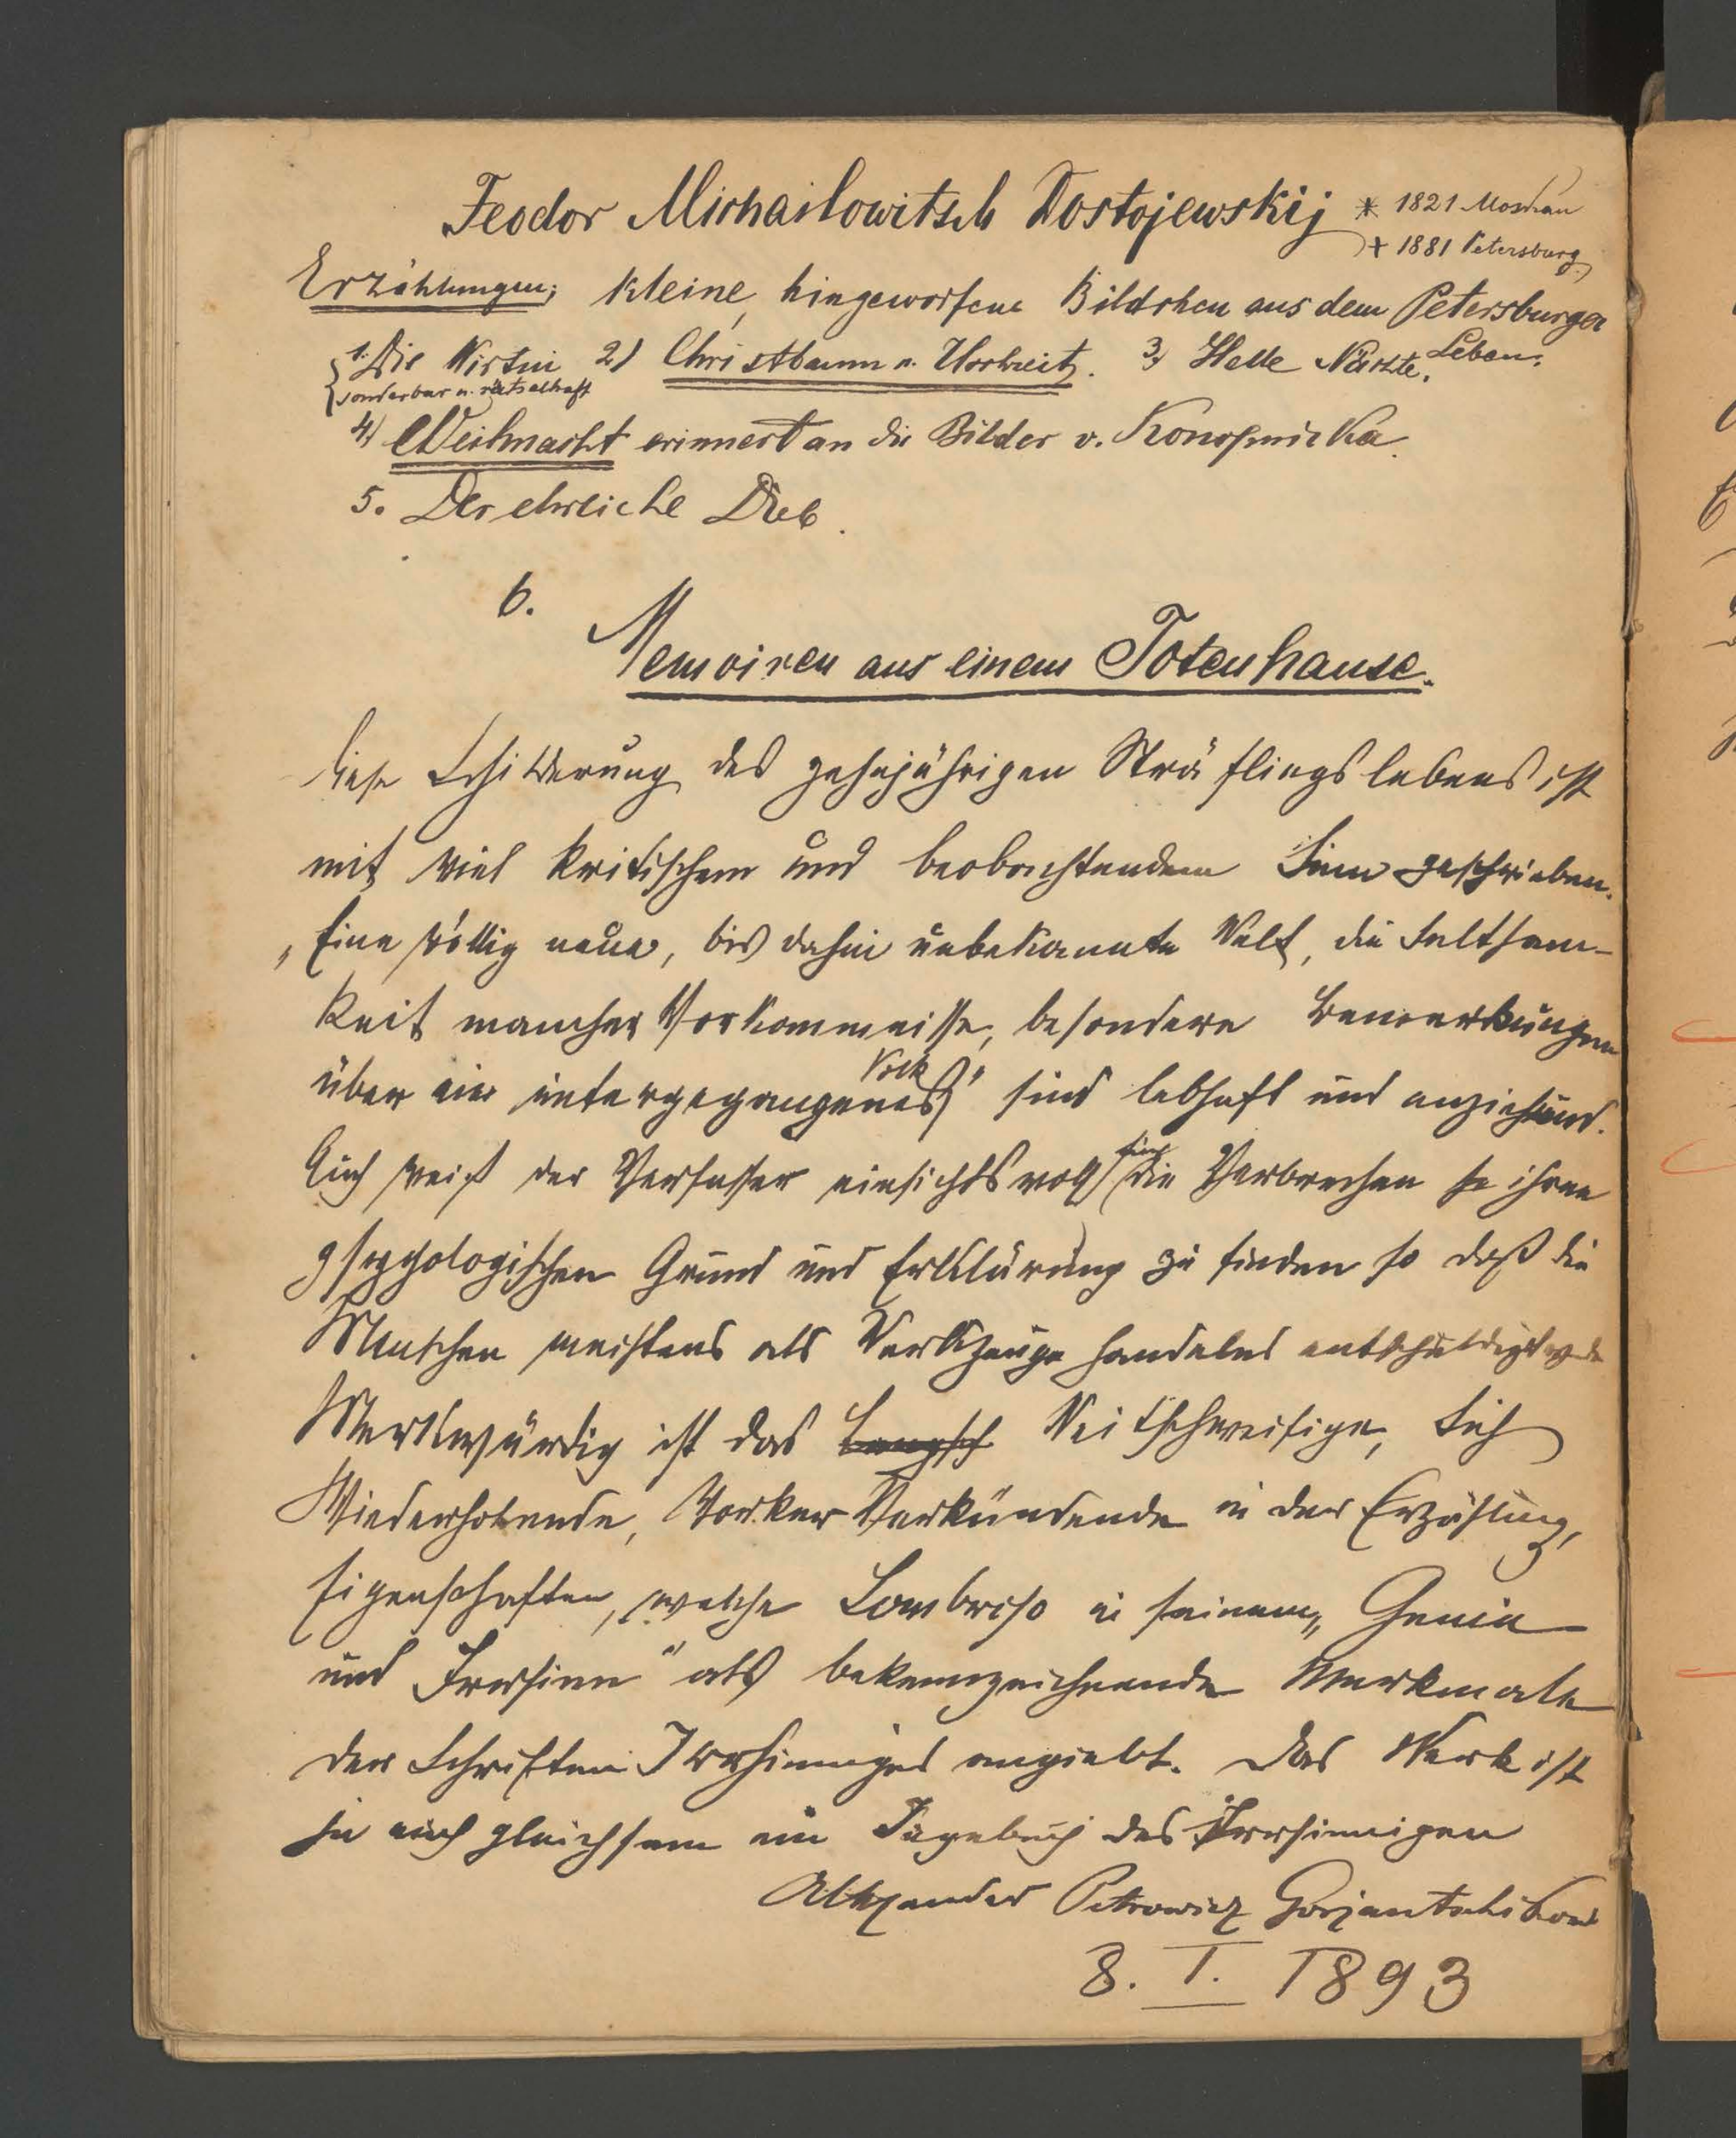 Feodor Michailowitsch Dostojewskij * 1821 Moskau
† 1881 Petersburg
Erzählungen; kleine, hingeworfene Bildchen aus dem Petersburger
Leben.
1. Die Wirtin 2) Christbaum u. Hochzeit. 3) Helle Nächte.
sonderbar u. rätselhaft
4) Weihnacht erinnert an die Bilder v. Konopnicka.
5. Der ehrliche Dieb.
6.
Memoiren aus einem Totenhause.
Diese Schilderung des zehnjährigen Sträflingslebens ist
mit viel kritischem und beobachtendem Sinn geschrieben.
„Eine völlig neue, bis dahin unbekannte Welt, die Seltsam-
keit mancher Vorkommnisse, besondere Bemerkungen
über ein untergegangenes Volk“ sind lebhaft und anziehend.
Auch weiß der Verfasser einsichtsvoll für die Verbrechen ihren
psychologischen Grund und Erklärung zu finden so daß die
Menschen meistens als Werkzeuge handelnd entschuldigt
Merkwürdig ist das Weitschweifige, Sich
Wiederholende, Vorher Verkündende in der Erzählung,
Eigenschaften, welche Lombroso in seinem „Genie
und Irrsinn“ als bekennzeichnende Merkmale
der Schriften Irrsinniger angiebt. Das Werk ist
ja auch gleichsam ein Tagebuch des Irrsinnigen
Alexander Petrowicz Gorjantschikow
8. I. 1893